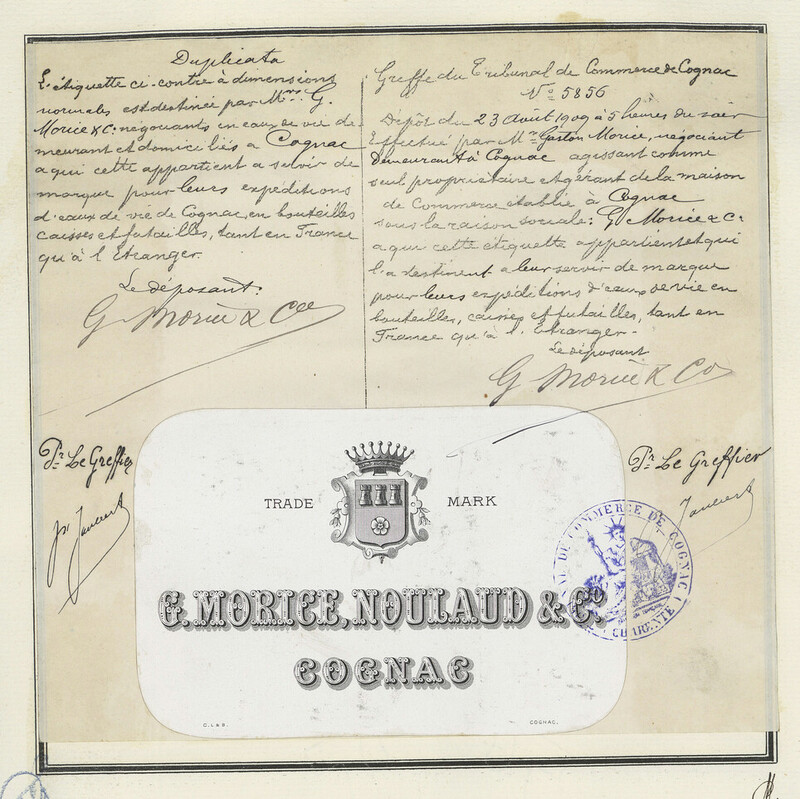 Duplicata
L'étiquette ci-contre à dimensions
normales est destinée par Mrs. G.
Morice & C: négociants en eaux de vie de-
meurant et domiciliés a Cognac
a qui cette appartient a servir de
marque pour leurs expéditions
d'eaux de vie de Cognac, en bouteilles
caisses et futailles, tant en France
qu'à l'Etranger.
Le déposant:
G. Morice & Cie
Greffe du Tribunal de Commerce de Cognac
No 5856
Dépôt du 23 Août 1909 à 5 heures du soir
Effectué par Mr Gaston Morice, négociant
Demeurant à Cognac agissant comme
seul propriétaire et gérant de la maison
de Commerce établie à Cognac
sous la raison sociale: G. Morice & C:
a qui cette étiquette appartient et qui
l'a destinent a leur servir de marque
pour leurs expéditions d'eaux de vie en
bouteilles, caisses et futailles, tant en
France qu'à l'Etranger-
Le déposant
G Morice & Co
Pr Le Greffier
Pr Le Greffier
TRADE MARK
G. MORICE, NOULAUD & Co.
COGNAC
C. L & B. COGNAC.
DE COMMERCE DE COGNAC
CHARENTE